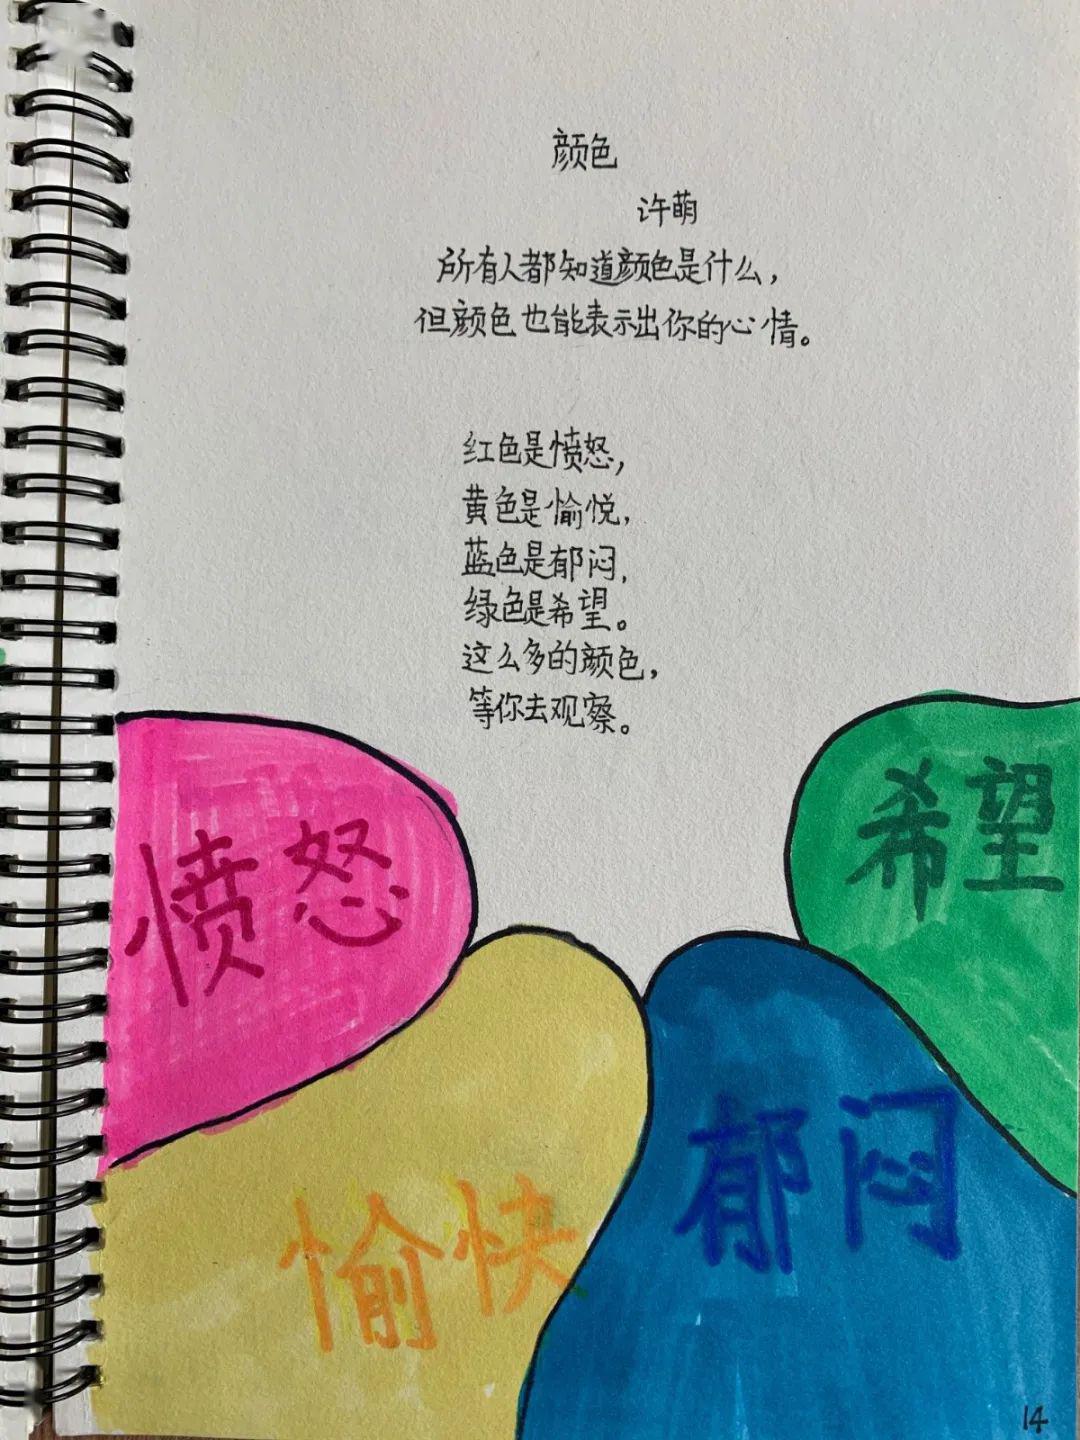 颜色
许萌
所有人都知道颜色是什么，
但颜色也能表示出你的心情。
红色是愤怒，
黄色是愉悦，
蓝色是郁闷，
绿色是希望。
这么多的颜色，
等你去观察。
愤怒
希望
愉快
郁闷
14